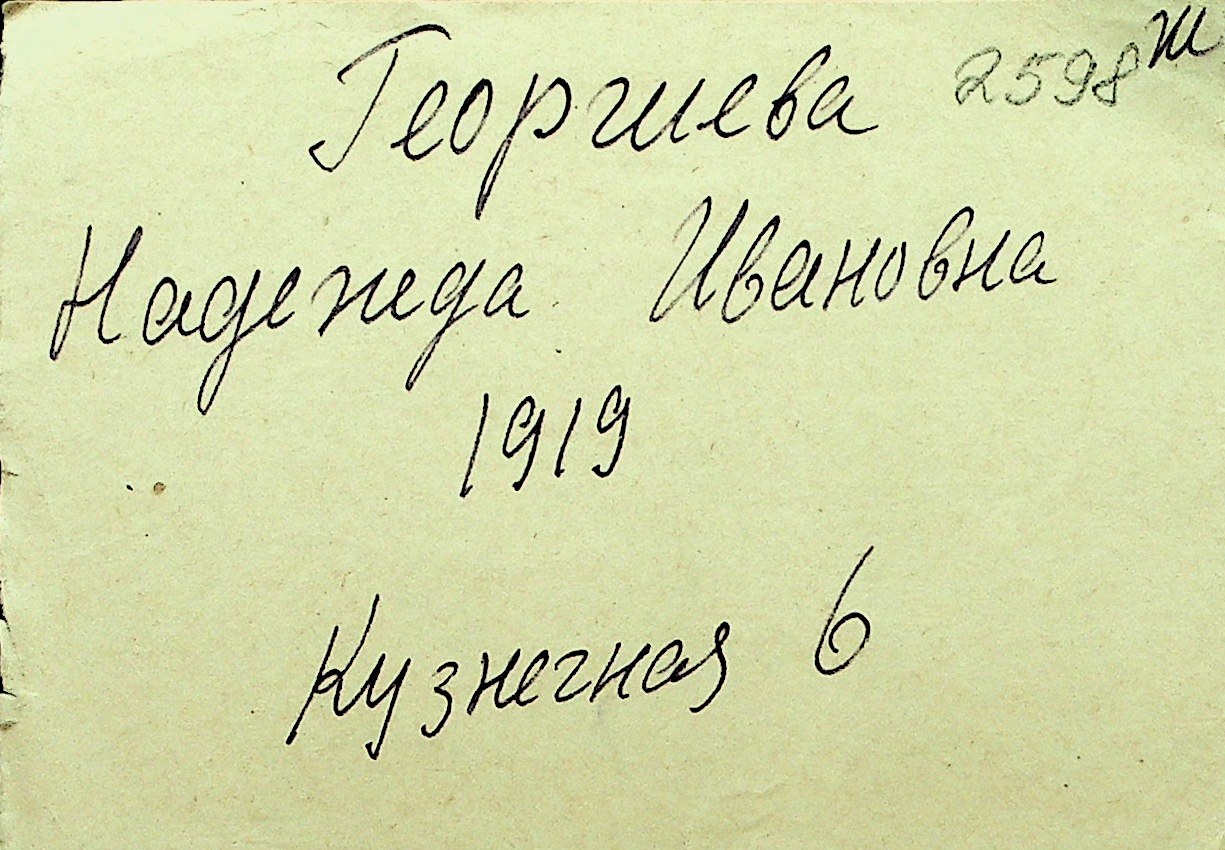 Георгиева 2598 ж
Надежда Ивановна
1919
Кузнечная 6